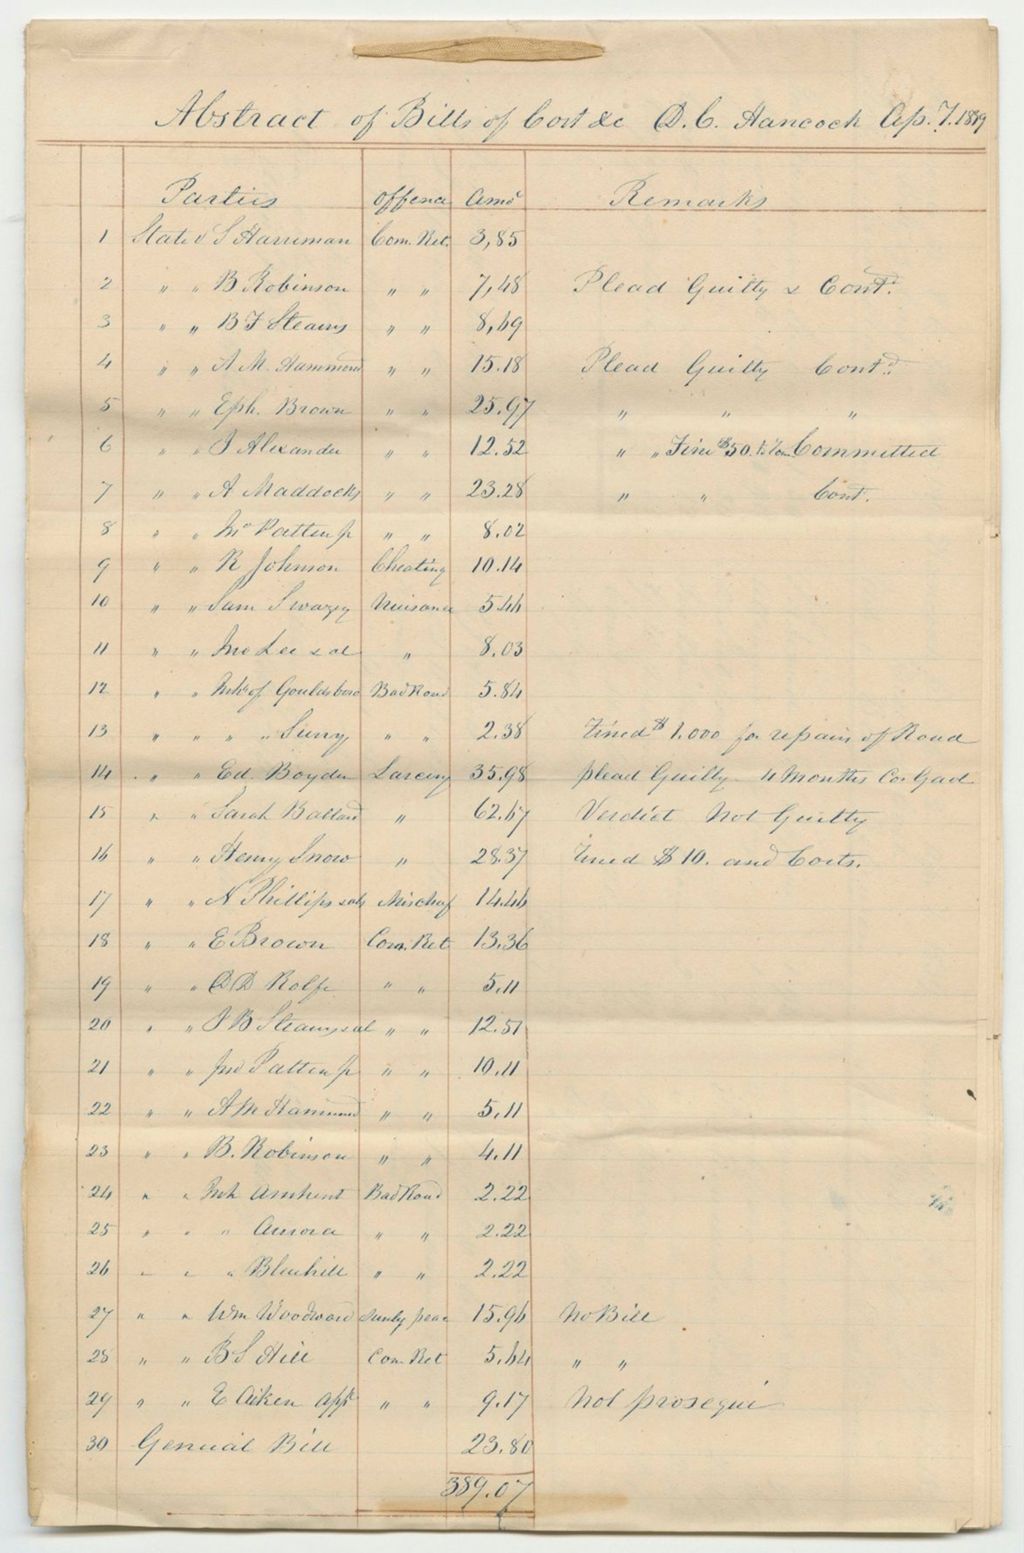 Abstract of Bills of Cost &c D. C. Hancock Ap. T. 1859
Parties Offence Amt Remarks
1 State v S Harriman Com. Ret. 3,85
2 " " B Robinson " " 7,48 Plead Guilty & Contd.
3 " " B F Stearns " " 8,69
4 " " A M. Hammond " " 15.18 Plead Guilty Contd.
5 " " Eph. Brown " " 25.97 " " "
6 " " J Alexander " " 12.52 " " Fine $50. Committed
7 " " A Maddocks " " 23.28 " " Cont.
8 " " Jno Patten Jr " " 8.02
9 " " R Johnson Cheating 10.14
10 " " Sam Swazey Nuisance 5.44
11 " " Jno Lee & al " 8.03
12 " " Inhts of Gouldsboro Bad Road 5.84
13 " " " " Surry " " 2.38 Fined $1,000 for repairs of Road
14 " " Ed. Boyden Larceny 35.98 plead Guilty 4 Months Co. Gaol
15 " " Sarah Ballard " 62.67 Verdict Not Guilty
16 " " Henry Snow " 28.37 Fined $10. and Costs.
17 " " N Phillips & als Mischief 14.46
18 " " E Brown Com. Ret 13.36
19 " " D D Rolfe " " 5.11
20 " " J B Stearns & al " " 12.51
21 " " Jno Patten Jr " " 10.11
22 " " A M Hammond " " 5.11
23 " " B. Robinson " " 4.11
24 " " Inh Amherst Bad Road 2.22
25 " " " Aurora " " 2.22
26 " " " Bluehill " " 2.22
27 " " Wm Woodward Surety peace 15.96 No Bill
28 " " B S Hill Com. Ret 5.64 " "
29 " " E Aiken Appt " " 9.17 Nol prosequi
30 General Bill 23.80
389.07